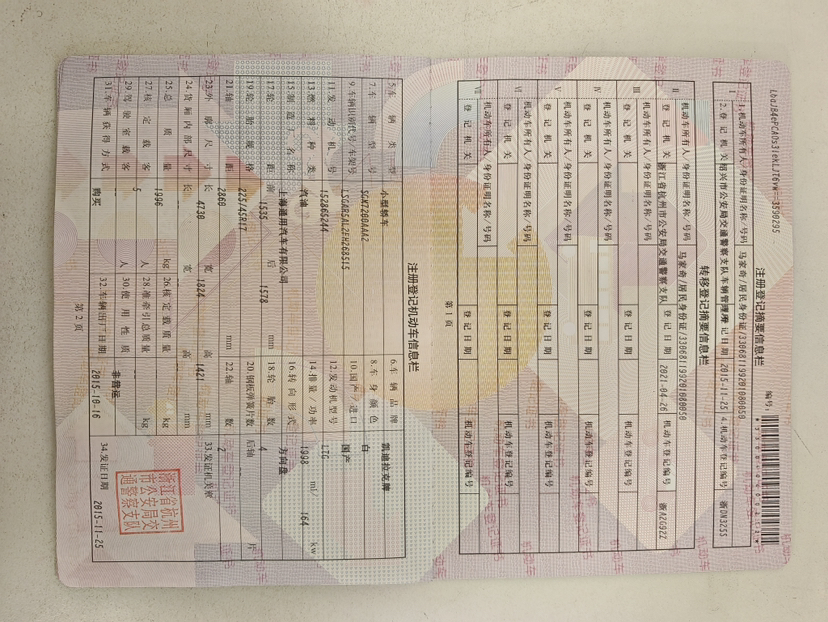 注册登记摘要信息栏
编号:
Ⅰ 1.机动车所有人/身份证明名称/号码 马家奇/居民身份证/330681199201080050
2.登记机关 绍兴市公安局交通警察支队车辆管理所 登记日期 2015-11-25 4.机动车登记编号 浙DW3Z55
转移登记摘要信息栏
Ⅱ 机动车所有人/身份证明名称/号码 马家奇/居民身份证/330681199201080050
登记机关 浙江省杭州市公安局交通警察支队 登记日期 2021-04-26 机动车登记编号 浙A2G92Z
Ⅲ 机动车所有人/身份证明名称/号码
登记机关 登记日期 机动车登记编号
Ⅳ 机动车所有人/身份证明名称/号码
登记机关 登记日期 机动车登记编号
Ⅴ 机动车所有人/身份证明名称/号码
登记机关 登记日期 机动车登记编号
Ⅵ 机动车所有人/身份证明名称/号码
登记机关 登记日期 机动车登记编号
Ⅶ 机动车所有人/身份证明名称/号码
登记机关 登记日期 机动车登记编号
第1页
注册登记机动车信息栏
5.车辆类型 小型轿车 6.车辆品牌 凯迪拉克牌
7.车辆型号 SGM7200AAA2 8.车身颜色 白
9.车辆识别代号/车架号 LSGAR5AL2FH268515 10.国产/进口 国产
11.发动机号 152865244 12.发动机型号 LTG
13.燃料种类 汽油 14.排量/功率 1998 ml/ 164 kw
15.制造厂名称 上海通用汽车有限公司 16.转向形式 方向盘
17.轮距 前 1535 后 1578 mm 18.轮胎数 4
19.轮胎规格 225/45R17 20.钢板弹簧片数 后轴 片
21.轴距 2860 mm 22.轴数 2
23.外廓尺寸 长 4730 宽 1824 高 1421 mm 33.发证机关章
24.货厢内部尺寸 长 宽 高 mm
25.总质量 1996 kg 26.核定载质量 kg
27.核定载客 5 人 28.准牵引总质量 kg
29.驾驶室载客 人 30.使用性质 非营运
31.车辆获得方式 购买 32.车辆出厂日期 2015-10-16 34.发证日期 2015-11-25
浙江省杭州
市公安局交
通警察支队
第2页